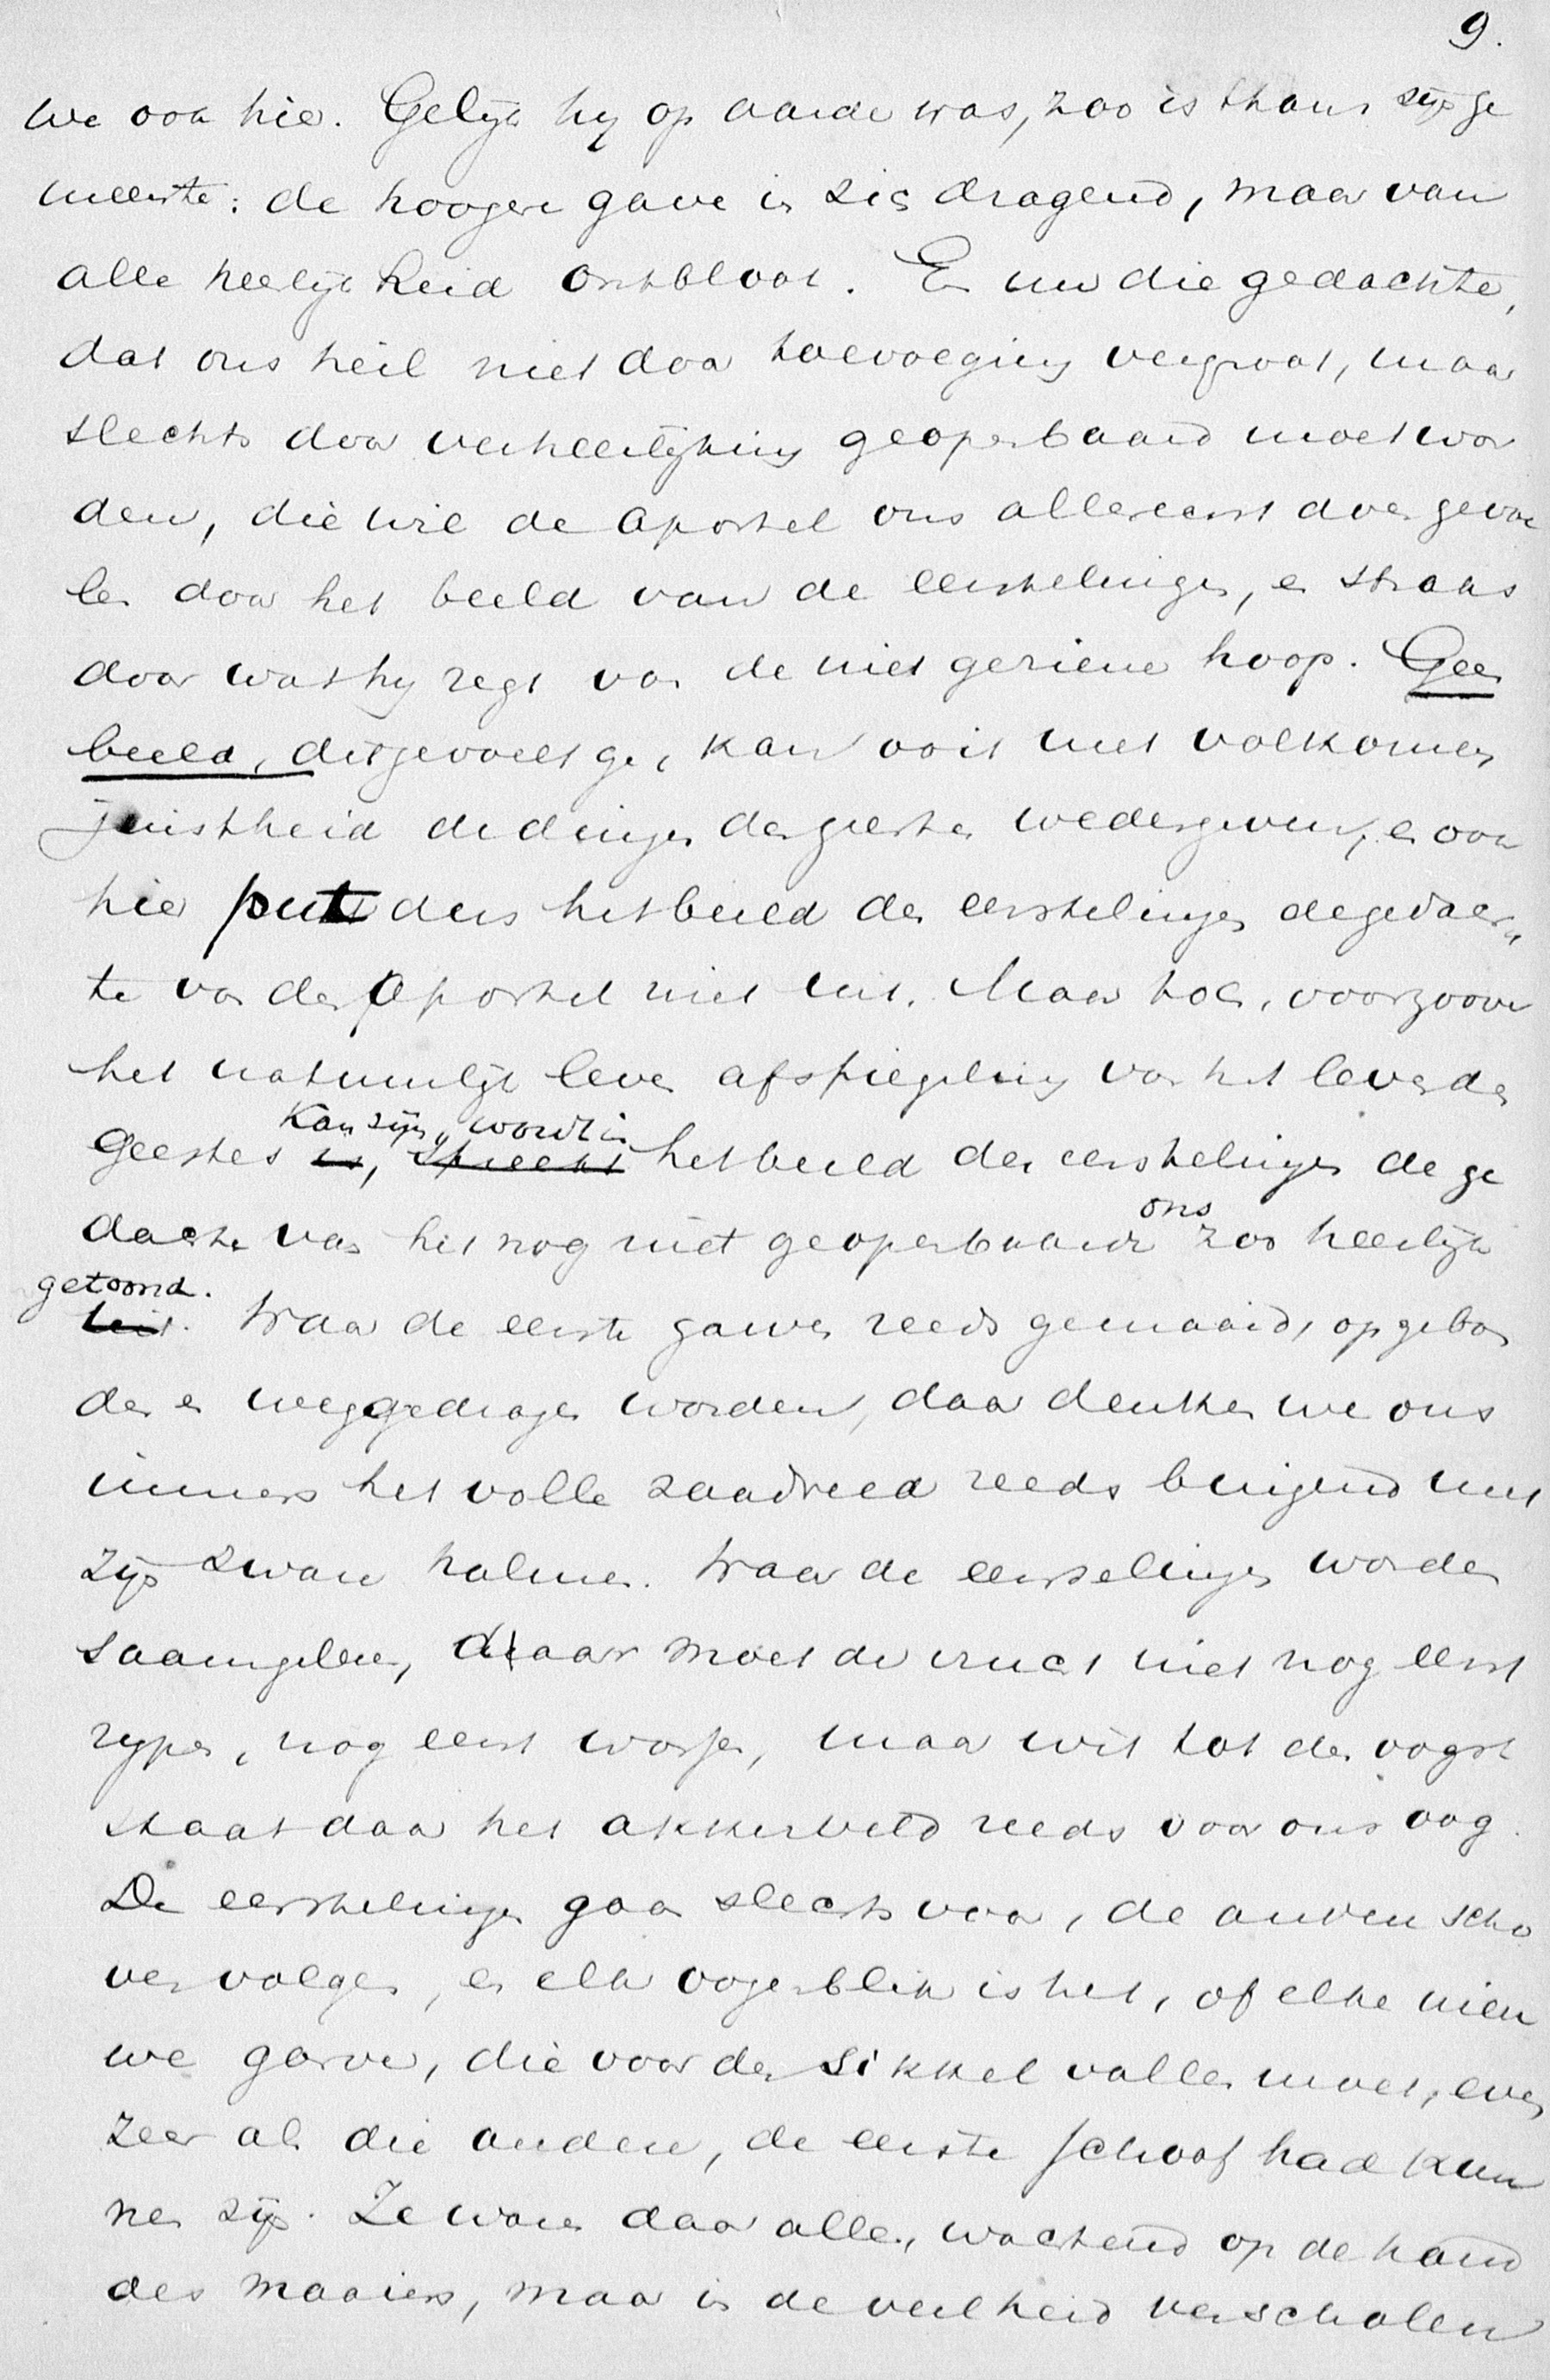 9.
we ook hier. Gelijk hij op aarde was, zoo is thans zijn ge
meente: de hoogere gave in zich dragend, maar van
alle heerlijkheid ontbloot. En nu die gedachte,
dat ons heil niet door toevoeging vergroot, maar
slechts door verheerlijking geopenbaard moet wor
den, die wil de Apostel ons allereerst doen gevoe
len door het beeld van de eerstelingen, en straks
door wat hij zegt van de niet geziene hoop. Geen
beeld, dit gevoelt ge, kan ooit met volkomen
juistheid de dingen des geestes wedergeven, en ook
hier put dus het beeld der eerstelingen de gedach
te van den Apostel niet uit. Maar toch, voorzoover
het natuurlijk leven afspiegeling van het leven des
kan zijn, wordt in
geestes is, spreekt het beeld der eerstelingen de ge
ons
dachte van het nog niet geopenbaarde zoo heerlijk
getoond.
uit. Waar de eerste garven reeds gemaaid, opgebon
den en weggedragen worden, daar denken we ons
immers het volle zaadveld reeds buigend met
zijn zware halmen. Waar de eerstelingen worden
saamgelezen, daar moet de vrucht niet nog eerst
rijpen, nog eerst worden, maar wit tot den oogst
staat daar het akkerveld reeds voor ons oog.
De eerstelingen gaan slechts voor, de andere scho
ven volgen, en elk oogenblik is het, of elke nieu
we garve, die voor den sikkel vallen moet, even
zeer als die andere, de eerste schoof had kun
nen zijn. Ze waren daar allen, wachtend op de hand
des maaiers, maar in de veelheid verscholen